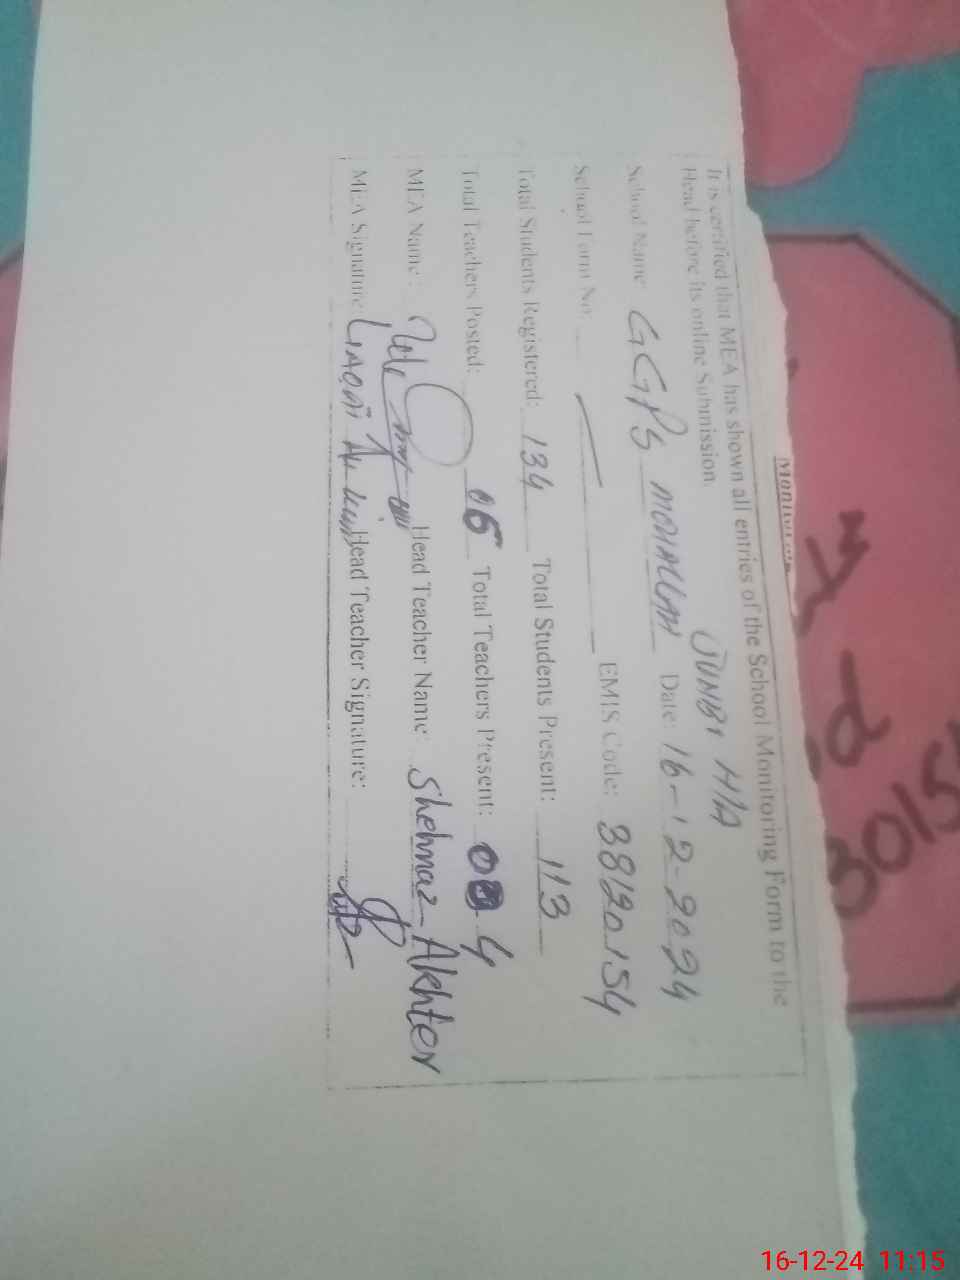 It is certified that MEA has shown all entries of the School Monitoring Form to the
Head before its online Submission.
JUNBI H/A
School Name: GGPS Date: 16-12-2024
School Form No: EMIS Code: 38120154
Total Students Registered: 134 Total Students Present: 113
Total Teachers Posted: 05 Total Teachers Present: 04
MEA Name: Head Teacher Name: Shehnaz-Akhter
MEA Signature: Head Teacher Signature:
16-12-24 11:15